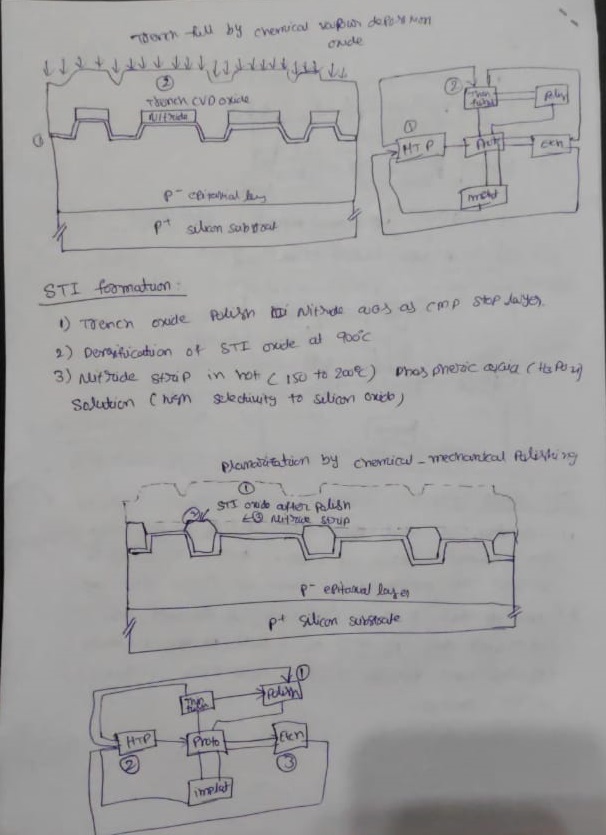 Trench fill by chemical vapour deposition
oxide
②
Trench CVD oxide
Nitride
①
P⁻ epitaxial lay
P⁺ silicon substrat
②
Thin
films
Polish
①
HTP
Etch
implat
STI formation:
1) Trench oxide Polish Nitride acts as CMP stop layer
2) Densification of STI oxide at 900°C
3) Nitride strip in hot (150 to 200°C) Phospheric acid (H3PO4)
Solution (high selectivity to silicon oxide)
Planarization by chemical-mechanical Polishing
①
STI oxide after Polish
② ③ Nitride strip
P⁻ epitaxial layer
P⁺ silicon substrate
①
Thin
films
Polish
HTP
Photo
Etch
②
③
implat